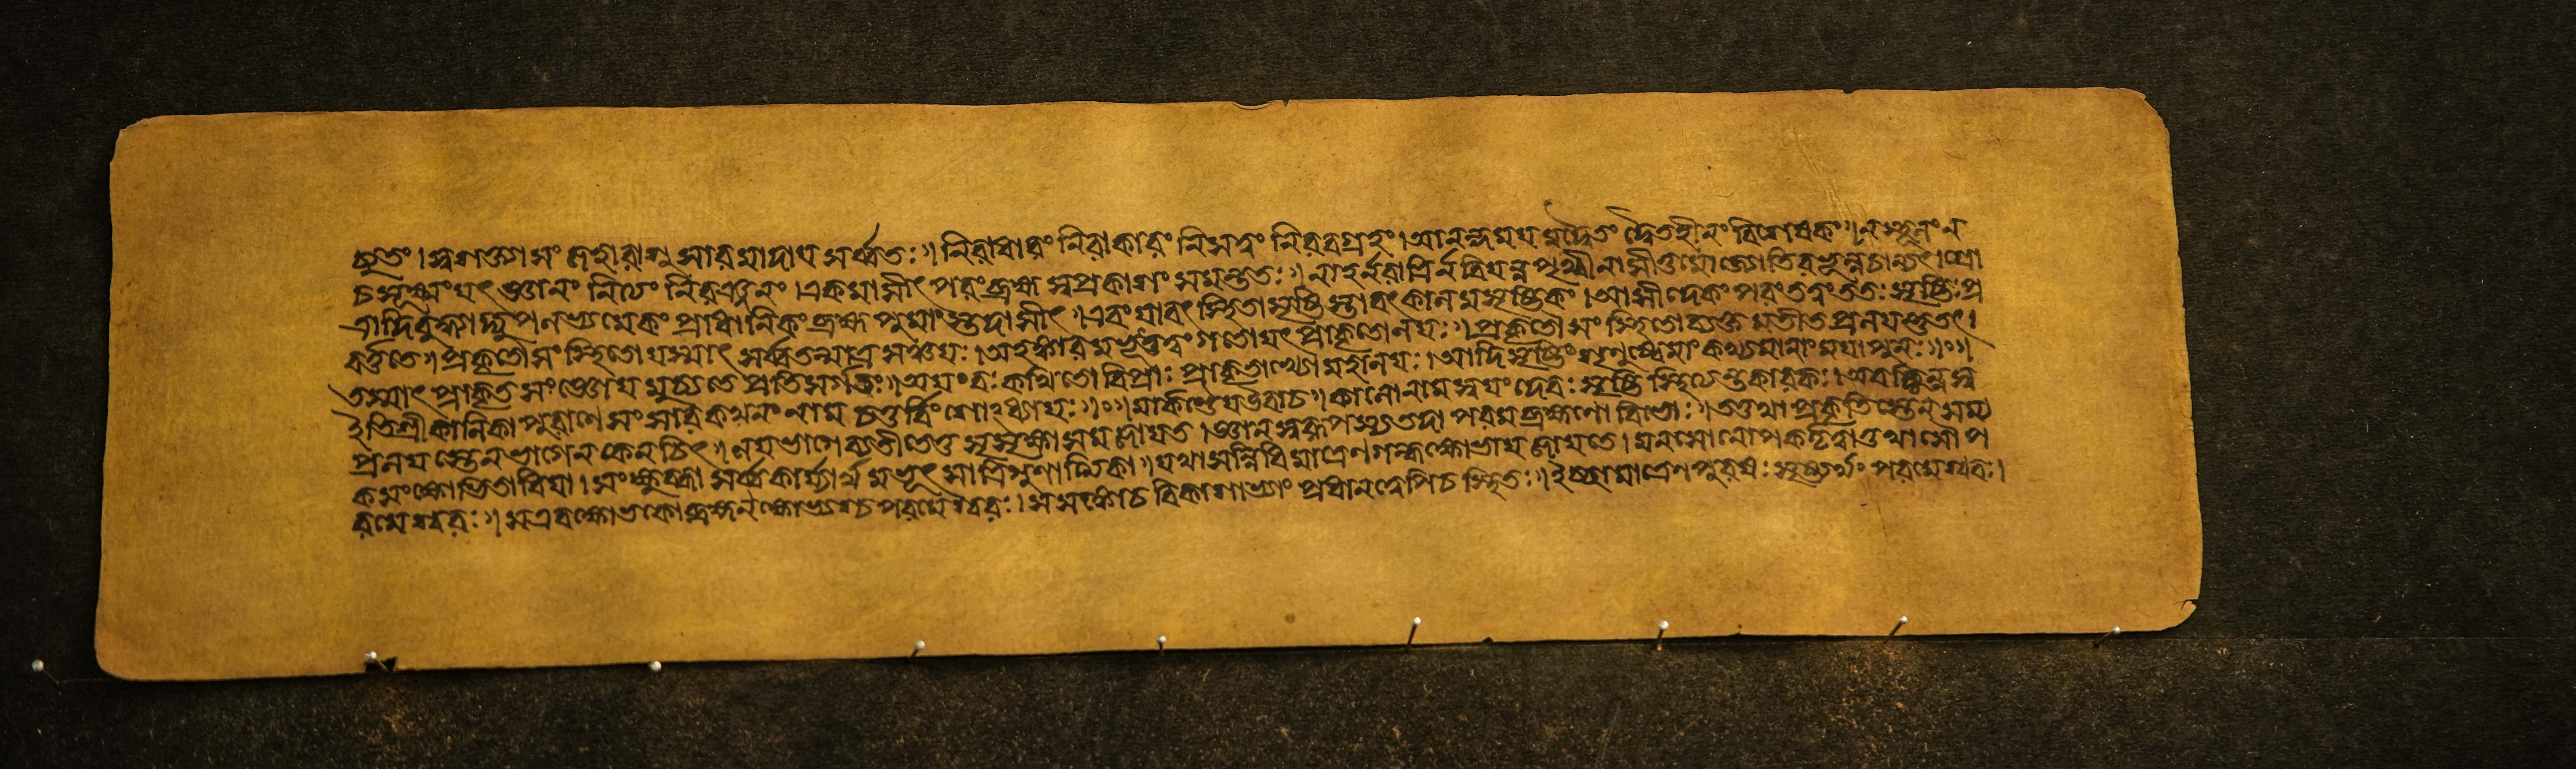 চ্যুতং। স্বশক্ত্যা সং জহারাশু সারমাদায় সর্ব্বতঃ॥ নিরাধারং নিরাকারং নিসত্বং নিরবগ্রহং। আনন্দময়মদ্বৈতং দ্বৈতহীনং বিশেষকং॥ ন স্থূলং ন
চ সূক্ষ্মং যৎ জ্ঞানং নিত্যং নিরঞ্জনং। একমাসীৎ পরং ব্রহ্ম স্বপ্রকাশং সমন্ততঃ॥ নাহর্নরাত্রির্নবিয়ন্ন পৃথ্বী নাসীত্তমোজ্যোতিরভূন্নচান্যৎ। শ্রো
ত্রাদিবুদ্ধ্যাদ্যুপলভ্যমেকং প্রাধানিকং ব্রহ্ম পুমাংস্তদাসীৎ॥ এবং যাবৎ স্থিতা সৃষ্টিস্তাবৎকালমসৃষ্টিকং। আসীদেকং পরংতত্বং ততঃ সৃষ্টিঃ প্র
বর্ত্ততে॥ প্রকৃতৌ সংস্থিতো যস্মাৎ সর্ব্বতন্মাত্রসঞ্চয়ঃ। অহঙ্কারমহত্তত্বং গতোযৎ প্রাকৃতোলয়ঃ॥ প্রকৃতৌ সংস্থিতো ব্যক্তমতীতপ্রলয়ন্তুতৎ।
তস্মাৎ প্রাকৃত সংজ্ঞোয়মুচ্যতে প্রতিসর্গতঃ॥ অয়ং বঃ কথিতো বিপ্রাঃ প্রাকৃতাখ্যো মহালয়ঃ। আদিসৃষ্টিং শৃণুধ্বেমাং কথ্যমানাং ময়াপুনঃ॥ঃ॥
ইতিশ্রীকালিকাপুরাণে সংসারকথনং নাম চতুর্বিংশোঽধ্যায়ঃ॥ঃ॥ মার্কণ্ডেয়উবাচ॥ কালোনামস্বয়ং দেবঃ সৃষ্টিস্থিত্যন্তকারকঃ। অবচ্ছিন্নস্য
প্রলয়স্তেনভাগেন কেনচিৎ॥ লয়ভাগে ব্যতীতেতু সিসৃক্ষা সমজায়ত। জ্ঞানস্বরূপস্যতদা পরমব্রহ্মণো বিভোঃ॥ ততথা প্রকৃতিস্তেন সম্য
ক সংক্ষোভিতাধিয়া। সংক্ষুব্ধা সর্ব্বকার্য্যার্থমভূৎ সাত্রিগুণাত্মিকা॥ যথাসন্নিধিমাত্রেণ গন্ধক্ষোভায় জায়তে। মনসোনোপকর্ত্তৃত্বাত্তথাসৌ প
রমেশ্বরঃ॥ সএবক্ষোভকোব্রহ্মন্ ক্ষোভ্যশ্চপরমেশ্বরঃ। সসংকোচবিকাশাভ্যাং প্রধানত্বেপিচ স্থিতঃ॥ ইচ্ছামাত্রেণ পুরুষঃ সৃষ্ট্যর্থং পরমেশ্বরঃ।